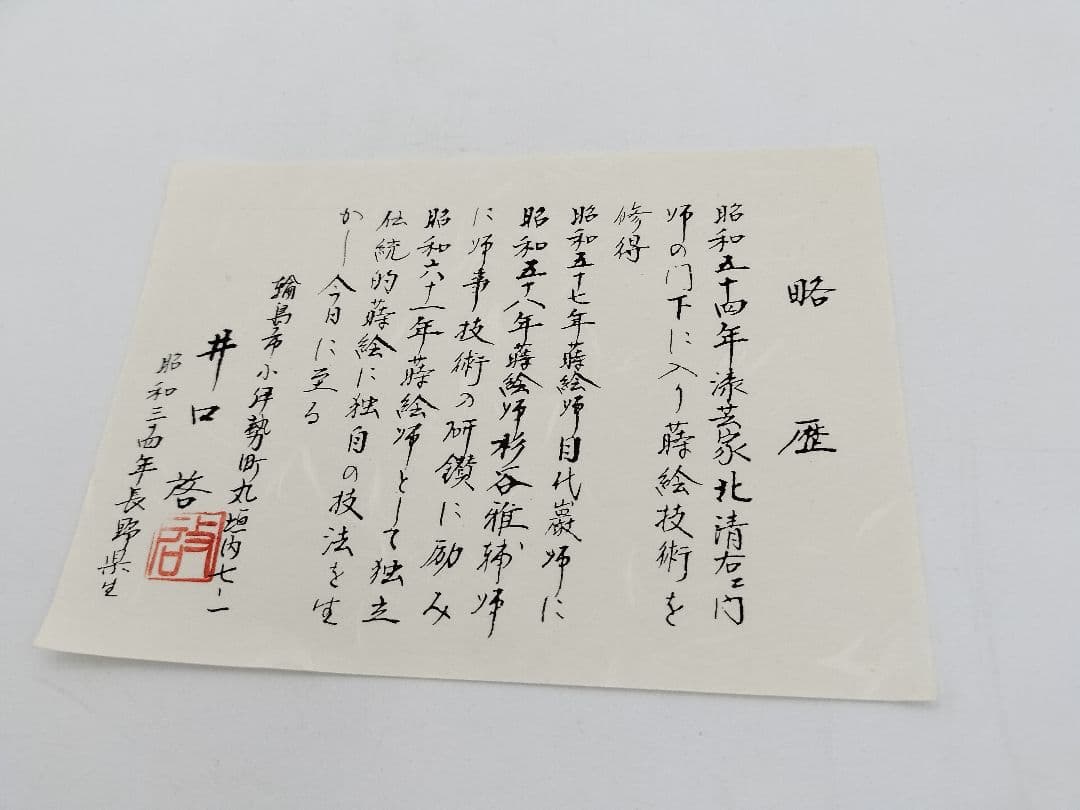 略歴
昭和五十四年漆芸家北清右ヱ門
师の门下に入り蒔絵技術を
修得
昭和五十七年蒔絵师目代巌师に
昭和五十八年蒔絵师杉谷雅輔师
に师事技術の研鑚に励み
昭和六十一年蒔絵师として独立
伝統的蒔絵に独自の技法を生
かし今日に至る
輪島市小伊勢町丸垣内七-一
井口啓
啓
昭和三四年長野県生